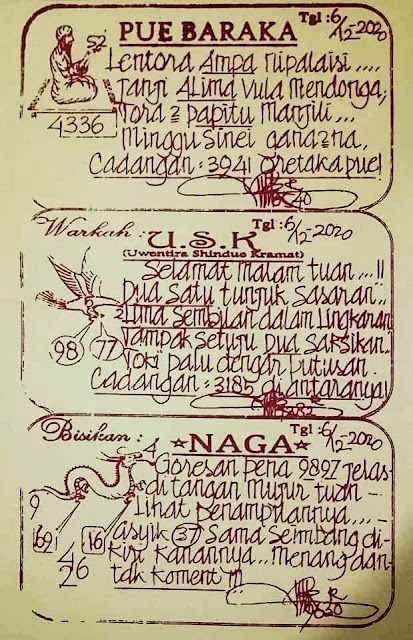 PUE BARAKA
Tgl : 6/12-2020
52
4336
Lentora Ampa Nipalaisi ....
Tanji ALima Vula Mendonga,
Tora 2 papitu Manjili ...
Minggu Sinei gana2na,
Cadangan : 3941 Oretaka pue!
40
Warkah :
Tgl : 6/12-2020
U.S.K
(Uwentira Shinduo Kramat)
98
77
Selamat malam tuan ...!!
Dua satu tunjuk Sasaran ..
Lima Sembilan dalam Lingkaran
Tampak Setuju Dua Saksikan ..
Toki palu dengan putusan.
Cadangan : 3185 di antaranya!
282
Bisikan :
Tgl : 6/12-2020
NAGA
4
9
69
16
4
26
Goresan pena 9897 jelas-
di tangan Mujur tuan -
Lihat penampilannya ...-
asyik 37 Sama Sembang di-
Kiri Kanannya ..! Menang dan-
tak koment !!!
9830